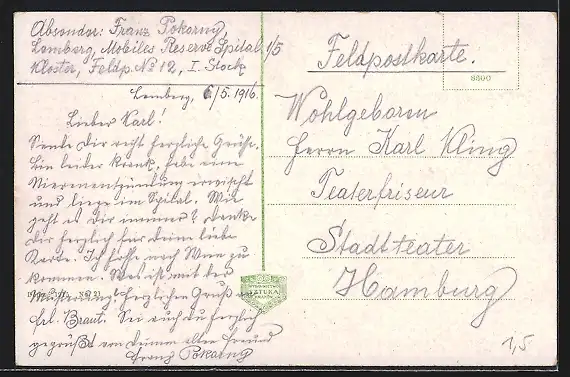 Absender: Franz Pokorny
Lemberg, Mobiles Reserve Spital 1/5
Kloster, Feldp. No 12, I. Stock
Lemberg, 6/5. 1916.
Lieber Karl!
Sende dir recht herzliche Grüße.
Bin leider krank, habe eine
Nierenentzündung erwischt
und liege im Spital. Wie
geht es dir immer? Danke
dir herzlich für deine liebe
Karte. Ich hoffe nach Wien zu
kommen. Was ist mit der
herzlichen Gruß an
Frl. Braut. Sei auch du herzlich
gegrüßt von deinem alten Freund
Franz Pokorny
Feldpostkarte.
8800
Wohlgeboren
Herrn Karl Kling
Teaterfriseur
Stadtteater
Hamburg
WYDAWNICTWO
SZTUKA
KRAKÓW
1,5